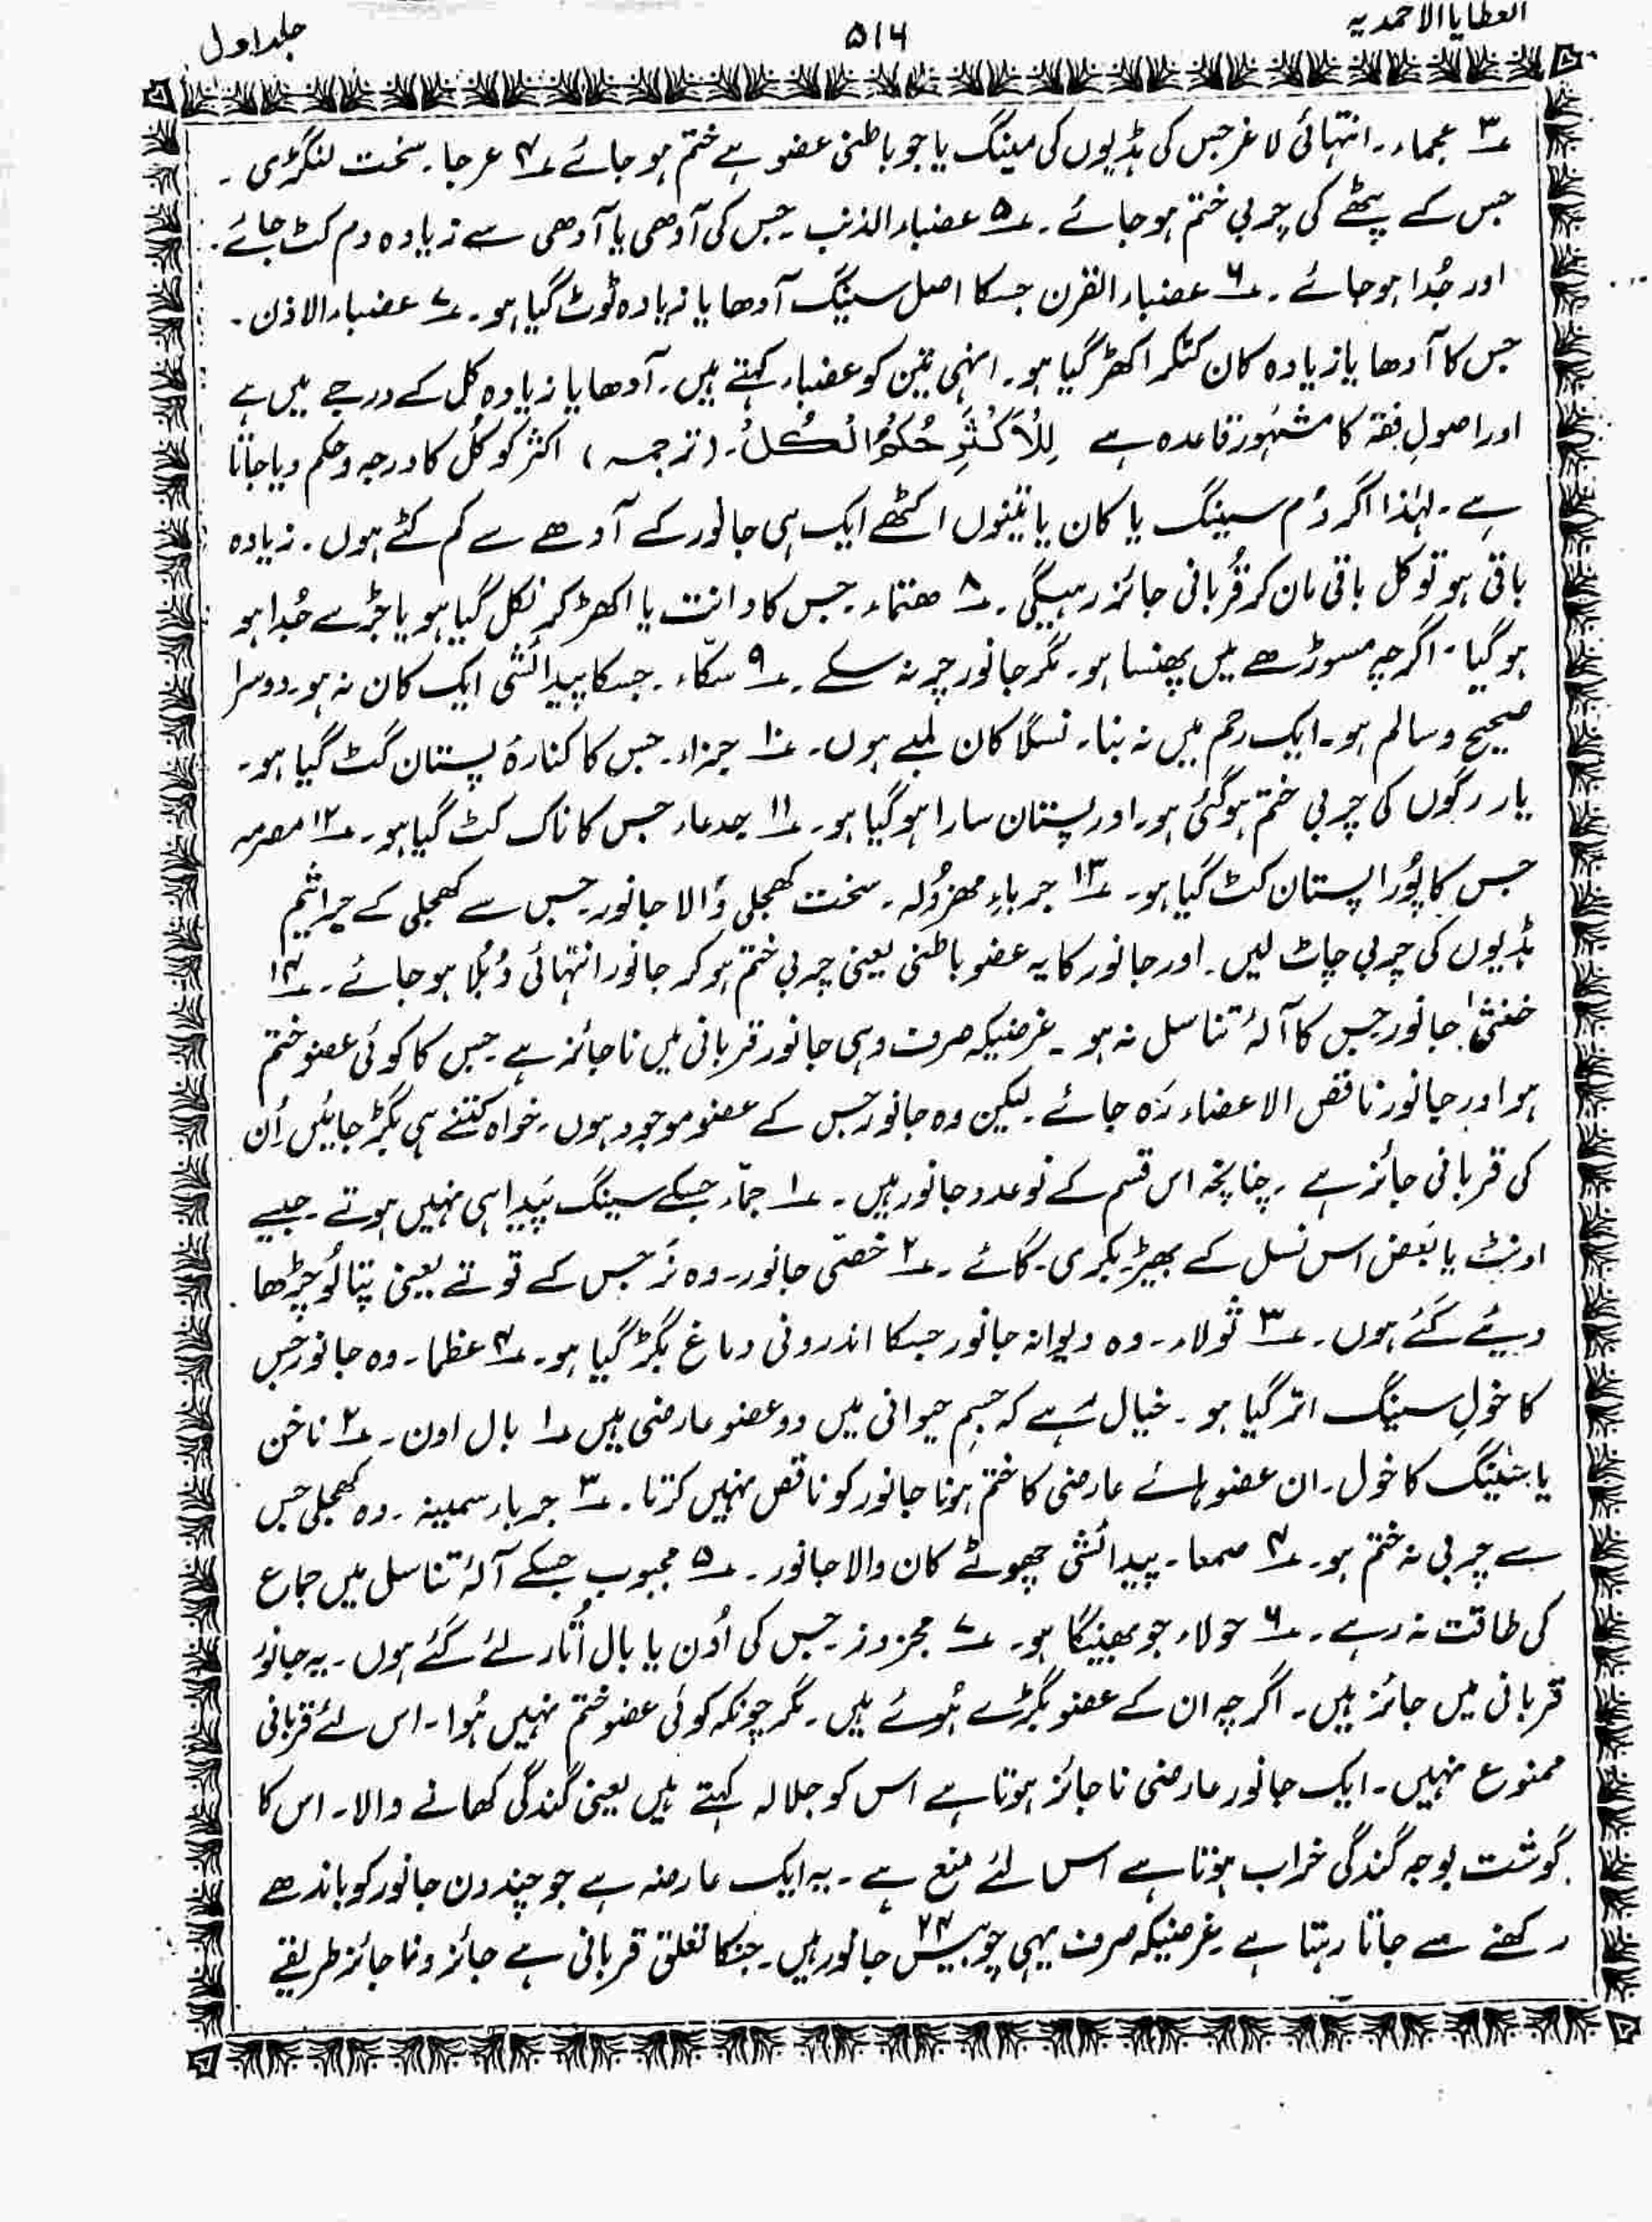 العطایا الاحمدیہ
۵۱۶
جلد اول
۳ عجماء۔ انتہائی لاغر جس کی ہڈیوں کی مینگ یا جو باطنی عضو ہے ختم ہو جائے ۴ عرجا۔ سخت لنگڑی ۔
جس کے پٹھے کی چربی ختم ہو جائے ۔ ۵ عضباء الذنب ۔ جس کی آدھی یا آدھی سے زیادہ دم کٹ جائے ۔
اور جُدا ہو جائے ۔ ۶ عضباء القرن جسکا اصل سینگ آدھا یا زیادہ ٹوٹ گیا ہو۔ ۷ عضباء الاذن ۔
جس کا آدھا یا زیادہ کان کٹکر اکھڑ گیا ہو۔ انہی تین کو عضباء کہتے ہیں۔ آدھا یا زیادہ کل کے درجے میں ہے
اور اصولِ فقہ کا مشہُور قاعدہ ہے لِلْاَکْثَرِ حُکْمُ الْکُلُ۔ (ترجمہ) اکثر کو کُل کا درجہ و حکم دیا جاتا
ہے ۔ لہٰذا اگر دُم سینگ یا کان یا تینوں اکٹھے ایک ہی جانور کے آدھے سے کم کٹے ہوں ۔ زیادہ
باقی ہو تو کل باقی مان کر قُربانی جائز رہیگی ۔ ۸ ھتماء ۔ جس کا دانت یا اکھڑ کر نکل گیا ہو یا جڑ سے جُدا ہو
ہو گیا ۔ اگرچہ مسوڑھے میں پھنسا ہو۔ مگر جانور چر نہ سکے ۔ ۹ سکّاء ۔ جسکا پیدائشی ایک کان نہ ہو۔ دوسرا
صحیح و سالم ہو۔ ایک رحم میں نہ بنا۔ نسلًا کان لمبے ہوں۔ ۱۰ جزاء۔ جس کا کنارۂ پستان کٹ گیا ہو۔
یا رگوں کی چربی ختم ہوگئی ہو۔ اور پستان سارا ہو گیا ہو۔ ۱۱ جدعاء جس کا ناک کٹ گیا ہو۔ ۱۲ مصرمہ
جس کا پُورا پستان کٹ گیا ہو۔ ۱۳ جرباءِ مھزُولہ ۔ سخت کھجلی وَالا جانور۔ جس سے کھجلی کے جراثیم
ہڈیوں کی چربی چاٹ لیں۔ اور جانور کا یہ عضو باطنی یعنی چربی ختم ہو کر جانور انتہائی دُبلا ہو جائے ۔ ۱۴
خنثیٰ جانور جس کا آلۂ تناسل نہ ہو ۔ غرضیکہ صرف وہی جانور قربانی میں ناجائز ہے جس کا کوئی عضو ختم
ہو اور جانور ناقص الاعضاء رَہ جائے ۔ لیکن وہ جانور جس کے عضو موجود ہوں ۔ خواہ کتنے ہی بگڑ جائیں اُن
کی قربانی جائز ہے ۔ چنانچہ اس قسم کے نو عدد جانور ہیں ۔ ۱ جمّاء جسکے سینگ پَیدا ہی نہیں ہوتے ۔ جیسے
اونٹ یا بَعض اس نسل کے بھیڑ۔ بکری ۔ گائے ۔ ۲ خصّی جانور۔ وہ نَر جس کے توتے یعنی پتالُو چڑھا
دیئے گئے ہوں ۔ ۳ ثولاء۔ وہ دیوانہ جانور جسکا اندرونی دماغ بگڑ گیا ہو۔ ۴ عظما۔ وہ جانور جس
کا خولِ سینگ اتر گیا ہو ۔ خیال رَہے کہ جسمِ حیوانی میں دو عضو عارضی ہیں ۱ بال اون ۔ ۲ ناخن
یا سَینگ کا خول ۔ ان عضو ہائے عارضی کا ختم ہونا جانور کو ناقص نہیں کرتا ۔ ۳ جرباء سمینہ ۔ وہ کھجلی جس
سے چربی نہ ختم ہو۔ ۴ صمعا ۔ پیدائشی چھوٹے کان والا جانور ۔ ۵ مجبوب جسکے آلۂ تناسل میں جماع
کی طاقت نہ رہے ۔ ۶ حولاء جو بھینگا ہو۔ ۷ مجزوز جس کی اُون یا بال اُتار لئے گئے ہوں ۔ یہ جانور
قربانی میں جائز ہیں ۔ اگرچہ ان کے عضو بگڑے ہُوئے ہیں ۔ مگر چونکہ کوئی عضو ختم نہیں ہُوا۔ اس لئے قربانی
ممنوع نہیں ۔ ایک جانور عارضی ناجائز ہوتا ہے اس کو جلالہ کہتے ہیں یعنی گندگی کھانے والا۔ اس کا
گوشت بوجہ گندگی خراب ہوتا ہے اس لئے منع ہے ۔ یہ ایک عارضہ ہے جو چند دن جانور کو باندھے
رکھنے سے جاتا رہتا ہے ۔ غرضیکہ صرف یہی چوبیس ۲۴ جانور ہیں ۔ جنکا تعلق قربانی ہے جائز و ناجائز طریقے